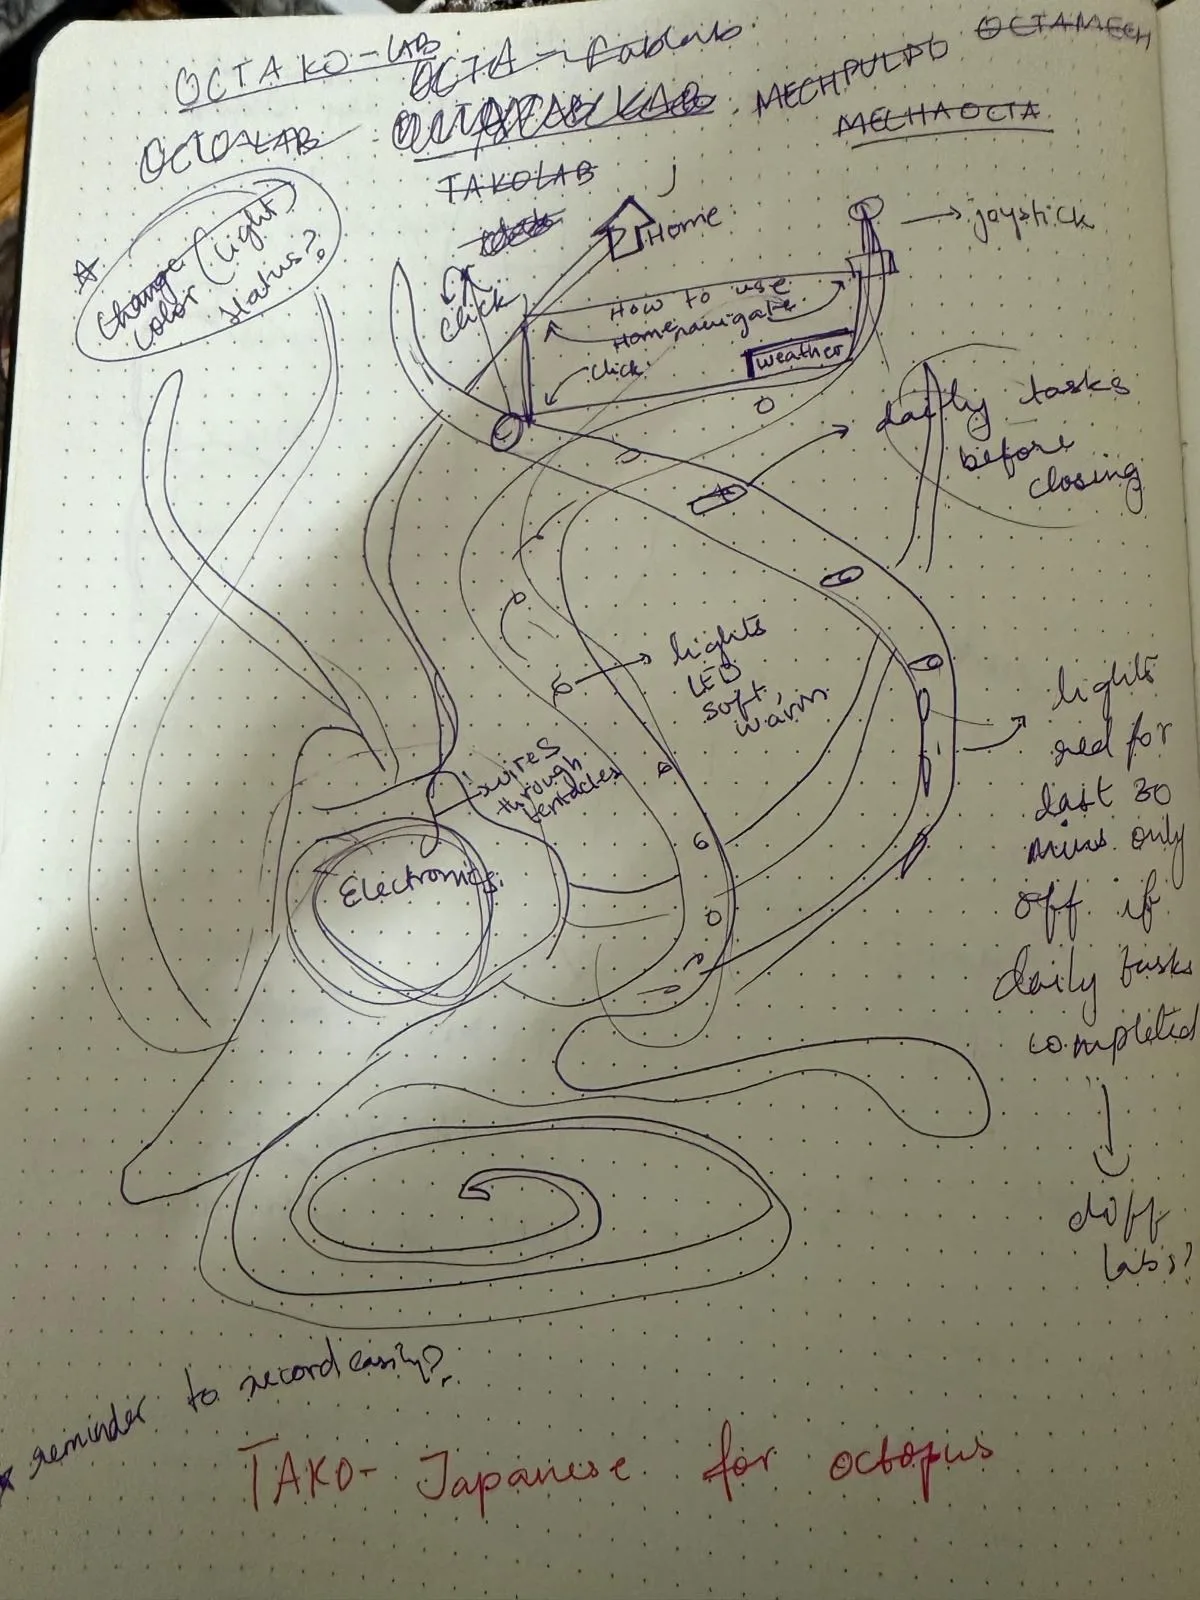 OCTAKO-LAB
OCTA-Fablab
OCTAMECH
MECHPULPO
OCTO-LAB
MECHAOCTA
TAKOLAB
Change (light)
color
status?
click
Home
joystick
How to use
Home navigate
click
weather
daily tasks
before
closing
lights
LED
soft,
warm
lights
red for
last 30
mins only
off if
daily tasks
completed
wires
through
tentacles
Electronics
labs?
reminder to record easily?
TAKO- Japanese for octopus